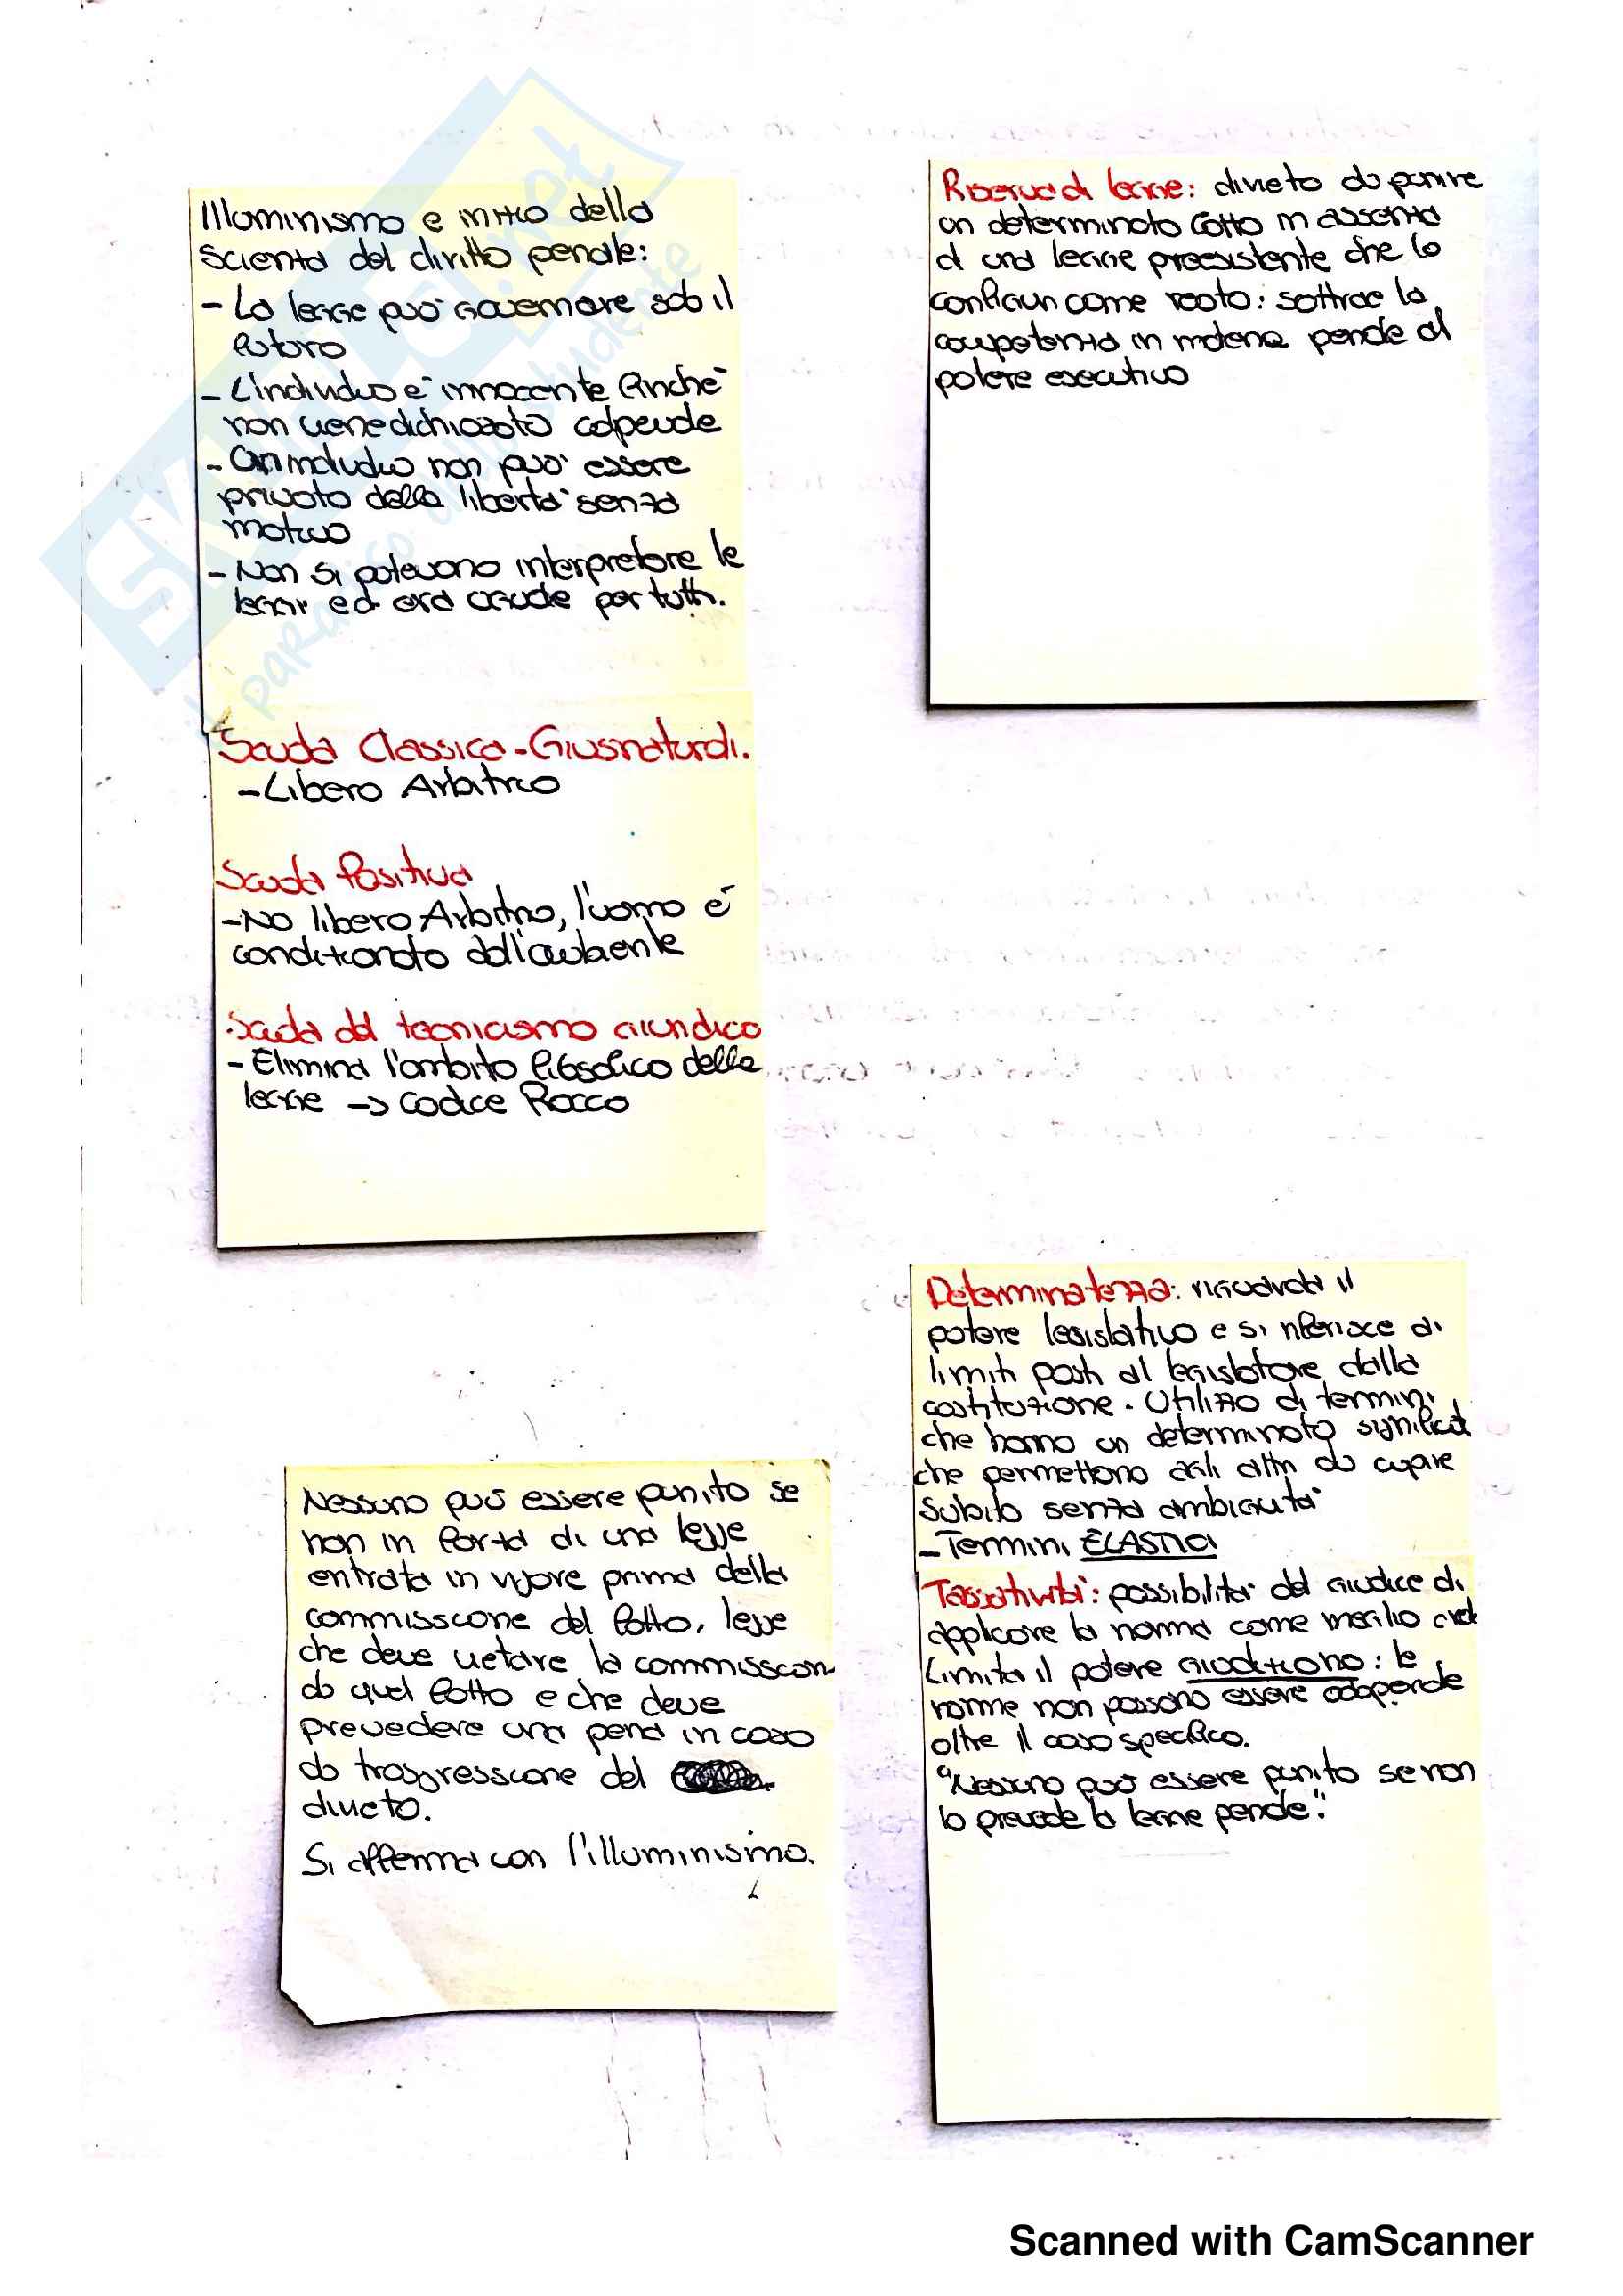 Illuminismo e inizio della
scienza del diritto penale:
- La legge può governare solo il
futuro
- L'individuo è innocente finchè
non viene dichiarato colpevole
- Un individuo non può essere
privato della libertà senza
motivo
- Non si potevano interpretare le
leggi ed era uguale per tutti.
Scuola Classica - Giusnaturali.
- Libero Arbitrio
Scuola Positiva
- No libero Arbitrio, l'uomo è
condizionato dall'ambiente
Scuola del tecnicismo giuridico
- Elimina l'ambito filosofico della
legge -> Codice Rocco
Nessuno può essere punito se
non in forza di una legge
entrata in vigore prima della
commissione del fatto, legge
che deve vietare la commission
di quel fatto e che deve
prevedere una pena in caso
di trasgressione del
divieto.
Si afferma con l'illuminismo.
Riserva di legge: divieto di punire
un determinato fatto in assenza
di una legge preesistente che lo
configuri come reato: sottrae la
competenza in materia penale al
potere esecutivo
Determinatezza: riguarda il
potere legislativo e si riferisce ai
limiti posti al legislatore dalla
costituzione. Utilizzo di termini
che hanno un determinato significat
che permettono agli altri di capire
subito senza ambiguità
- Termini ELASTICI
Tassatività: possibilità del giudice di
applicare la norma come meglio cred
Limita il potere giudiziario: le
norme non possono essere
oltre il caso specifico.
"Nessuno può essere punito se non
lo prevede la legge penale".
SKUOLA.net
il paradiso dello studente
Scanned with CamScanner